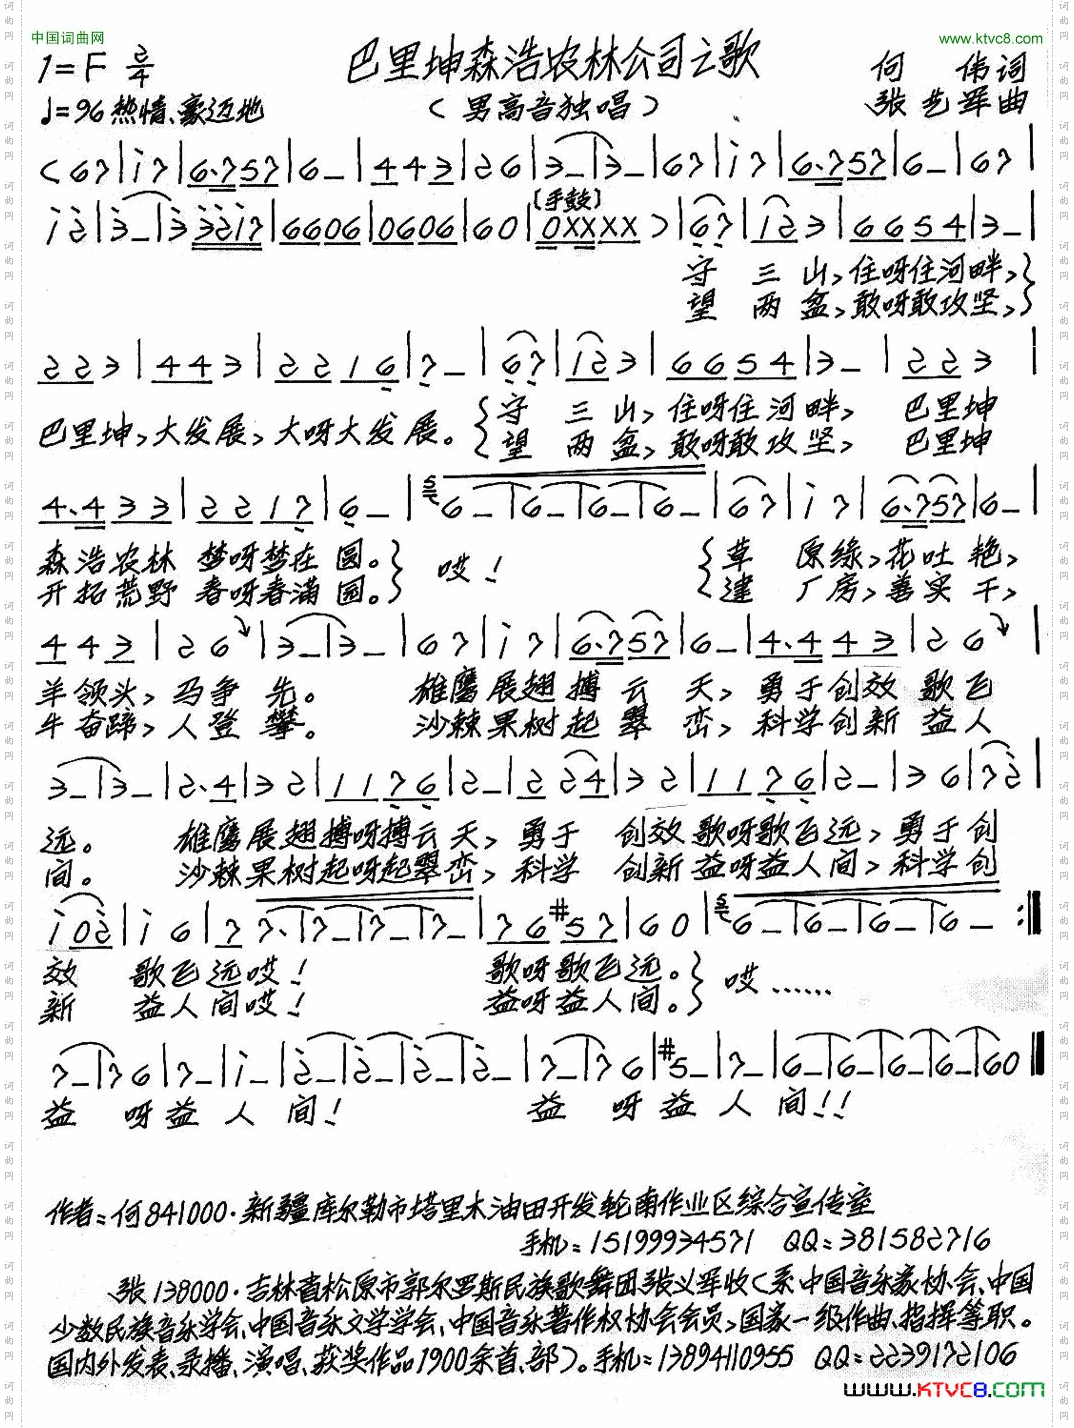 中国词曲网
www.ktvc8.com
1=F 2/4
巴里坤森浩农林公司之歌
何 伟词
♩=96 热情、豪迈地
(男高音独唱)
张艺军曲
(67|i7|6.757|6_|443|26|3_|3_|67|i7|6.757|6_|67|
i2|3_|3 3217|6606|0606|60|0XXXX)|67|123|6654|3_|
[手鼓]
守 三 山,住呀住河畔,}
望 两 盆,敢呀敢攻坚,}
223|443|2216|7_|67|123|6654|3_|223|
巴里坤,大发展,大呀大发展。{守 三 山,住呀住河畔, 巴里坤
{望 两 盆,敢呀敢攻坚, 巴里坤
4.433|2217|6_|6_|6_|6_|6_|67|i7|6.757|6_|
森浩农林 梦呀梦在 圆。} 哎! {草 原绿,花吐 艳,
开拓荒野 春呀春满 园。} {建 厂房,善实 干,
443|26|3_|3_|67|i7|6.757|6_|4.443|26|
羊领头,马争 先。 雄鹰展翅搏 云 天, 勇于创效 歌飞
牛奋蹄,人登 攀。 沙棘果树起 翠 峦, 科学创新 益人
3_|3_|2.4|32|1176|2_|224|32|1176|2_|36|72|
远。 雄鹰展翅搏呀搏云天, 勇于 创效歌呀歌飞远,勇于创
间。 沙棘果树起呀起翠峦, 科学 创新益呀益人间,科学创
i02|i6|77.|7_|7_|7_|76#57|60|6_|6_|6_|6_:||
效 歌飞远哎! 歌呀歌飞远。} 哎……
新 益人间哎! 益呀益人间。}
7_|76|7_|i_|2_|2_|2_|2_|7_|76|#5_|7_|6_|6_|6_|6_|60||
益 呀益 人 间! 益 呀益 人 间!!
作者:何841000·新疆库尔勒市塔里木油田开发轮南作业区综合宣传室
手机:15199934571 QQ:381582716
张138000·吉林省松原市郭尔罗斯民族歌舞团张义军收(系中国音乐家协会、中国
少数民族音乐学会、中国音乐文学学会、中国音乐著作权协会会员,国家一级作曲、指挥等职。
国内外发表、录播、演唱、获奖作品1900余首、部)。手机:13894110955 QQ:2239172106
www.KTVC8.COM